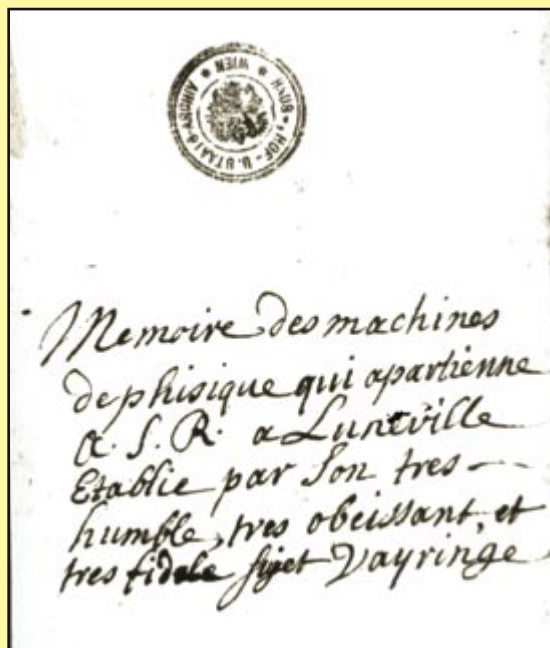 WIEN
Memoire des machines
de phisique qui apartienne
A. S. R. a Luneville
Etablie par Son tres
humble, tres obeissant, et
tres fidele sujet Vayringe